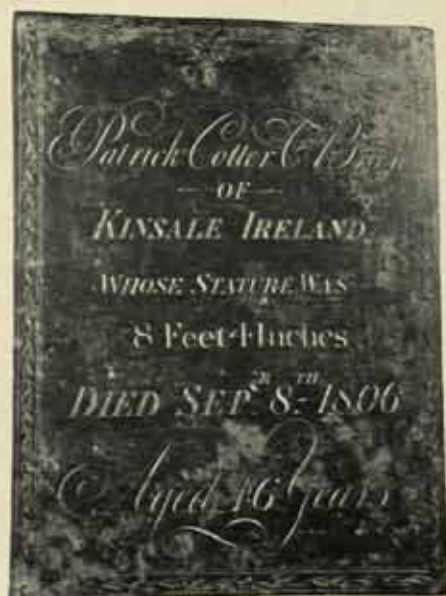 Patrick Cotter O'Brien
— OF —
KINSALE IRELAND.
WHOSE STATURE WAS
8 Feet 1 Inches
DIED SEPR. 8TH. 1806
Aged 46 Years